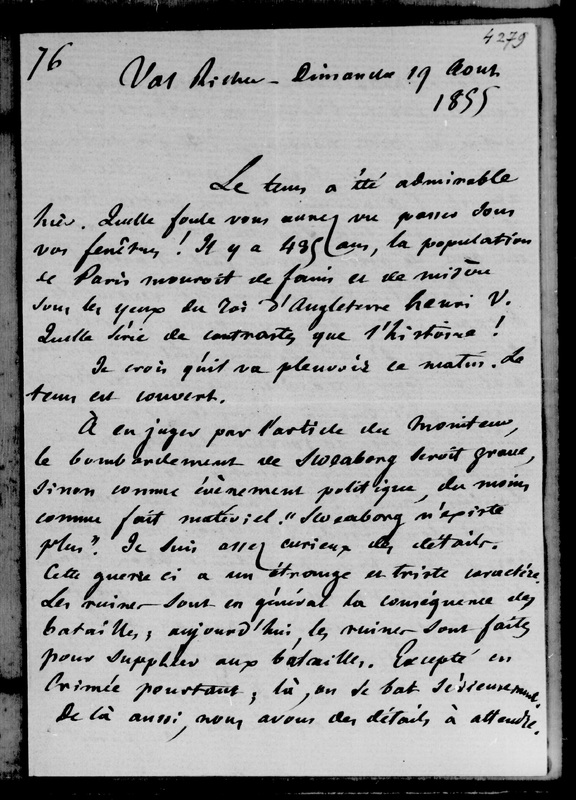 76
4279
Val Richer - Dimanche 19 Aout
1855
Le tems a été admirable
hier. Quelle foule vous aurez vu passer sous
vos fenêtres ! Il y a 435 ans, la population
de Paris mouroit de faim et de misère
sous les yeux du roi d'Angleterre henri V.
Quelle série de contrastes que l'histoire !
Je crois qu'il va pleuvoir ce matin. Le
tems est couvert.
À en juger par l'article du Moniteur,
le bombardement de Sweaborg seroit grave,
sinon comme évènement politique, du moins
comme fait matériel. "Sweaborg n'existe
plus". Je suis assez curieux des détails.
Cette guerre ci a un étrange et triste caractère.
Les ruines sont en général la conséquence des
batailles ; aujourd'hui, les ruines sont faites
pour suppléer aux batailles. Excepté en
Crimée pourtant ; là, on se bat sérieusement.
De là aussi, nous avons des détails à attendre.